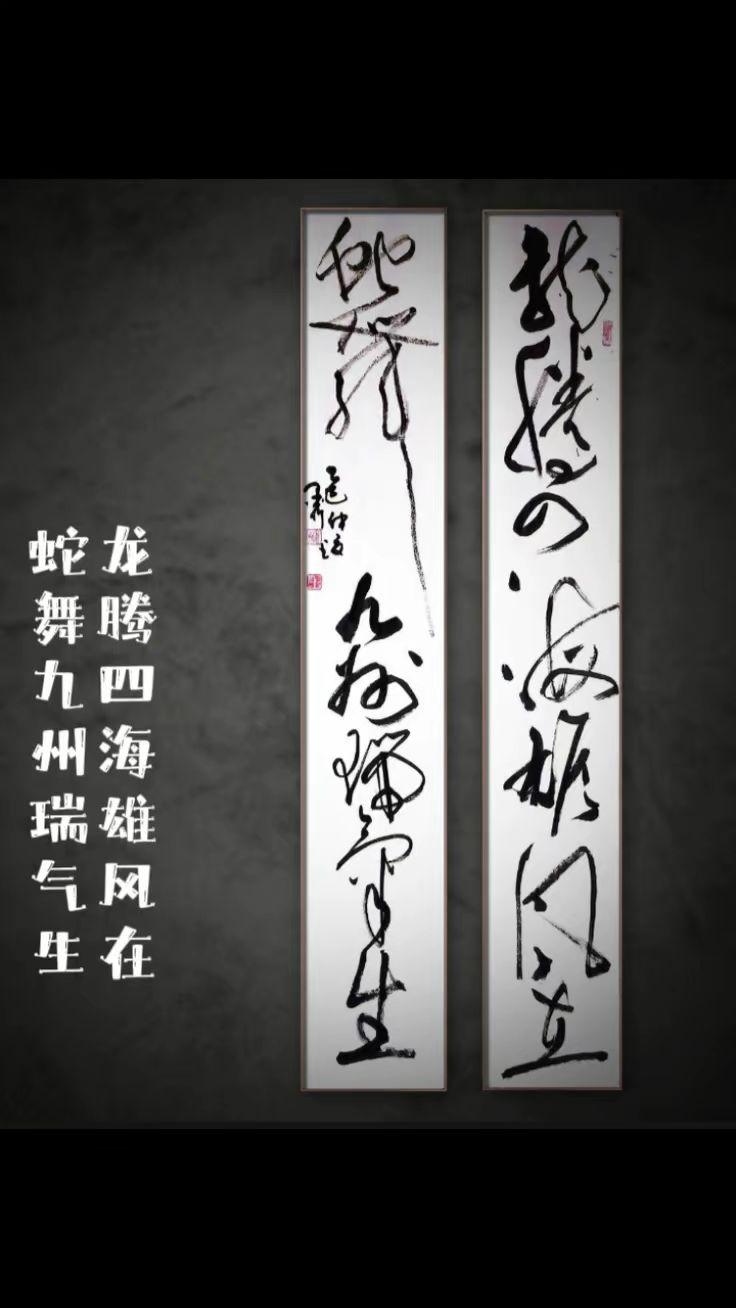 龍騰四海雄风在
蛇舞九州瑞氣生
龙腾四海雄风在
蛇舞九州瑞气生